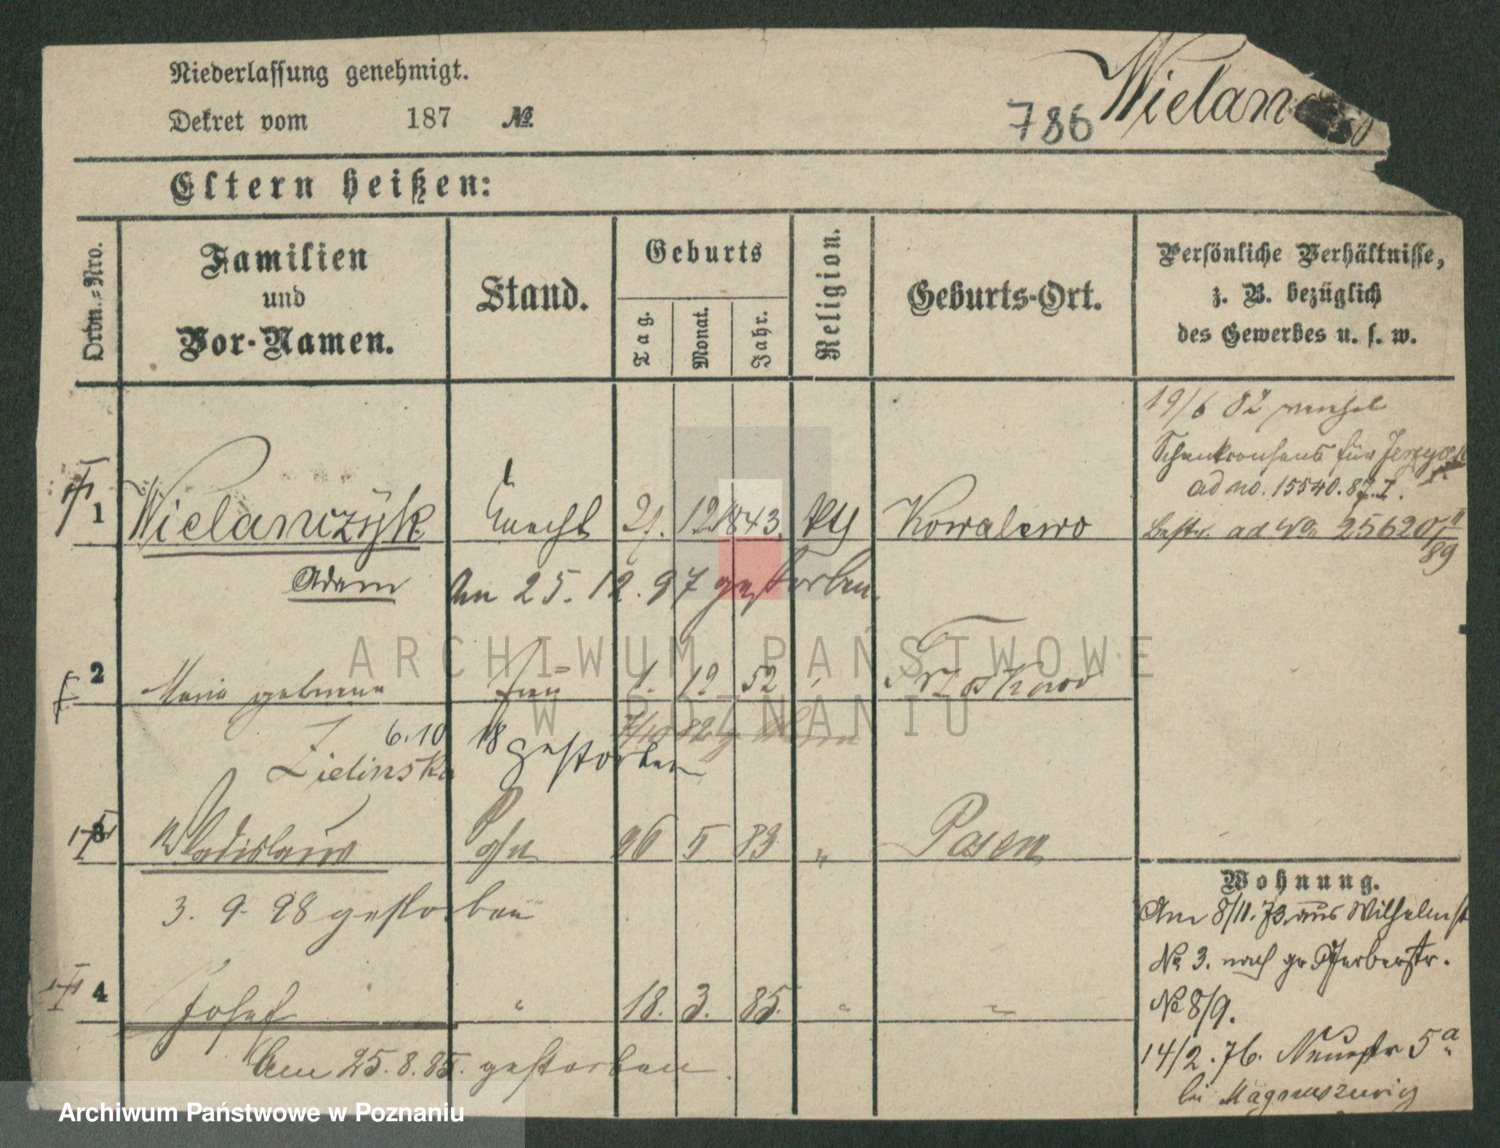 Niederlassung genehmigt.
Dekret vom 187 №
786 Wielan
Eltern heißen:
Ordn.-Nro.
Familien
und
Vor-Namen.
Stand.
Geburts
Tag.
Monat.
Jahr.
Religion.
Geburts-Ort.
Persönliche Verhältnisse,
z. B. bezüglich
des Gewerbes u. s. w.
19/6 82
Schankconsens für
ad no. 15540.82.I.
1 Wielanczyk Knecht 21. 12 1843. Kowalewo
ad No 25620/89
Adam
Am 25. 12. 97 gestorben.
2 Maria geborene Frau 1. 12 52
6.10 18 gestorben
Zielinska
3 Wladislaus Sohn 26 5 83 " Posen
3. 9. 98 gestorben
4 Josef " 18. 3. 85. " "
Am 25.8.85. gestorben.
Wohnung.
Am 8/11.73 aus Wilhelmst
No 3. nach gr Gerberstr.
No 8/9.
14/2.76. Neuestr 5a
bei Magnuszewicz
ARCHIWUM PAŃSTWOWE
W POZNANIU
Archiwum Państwowe w Poznaniu